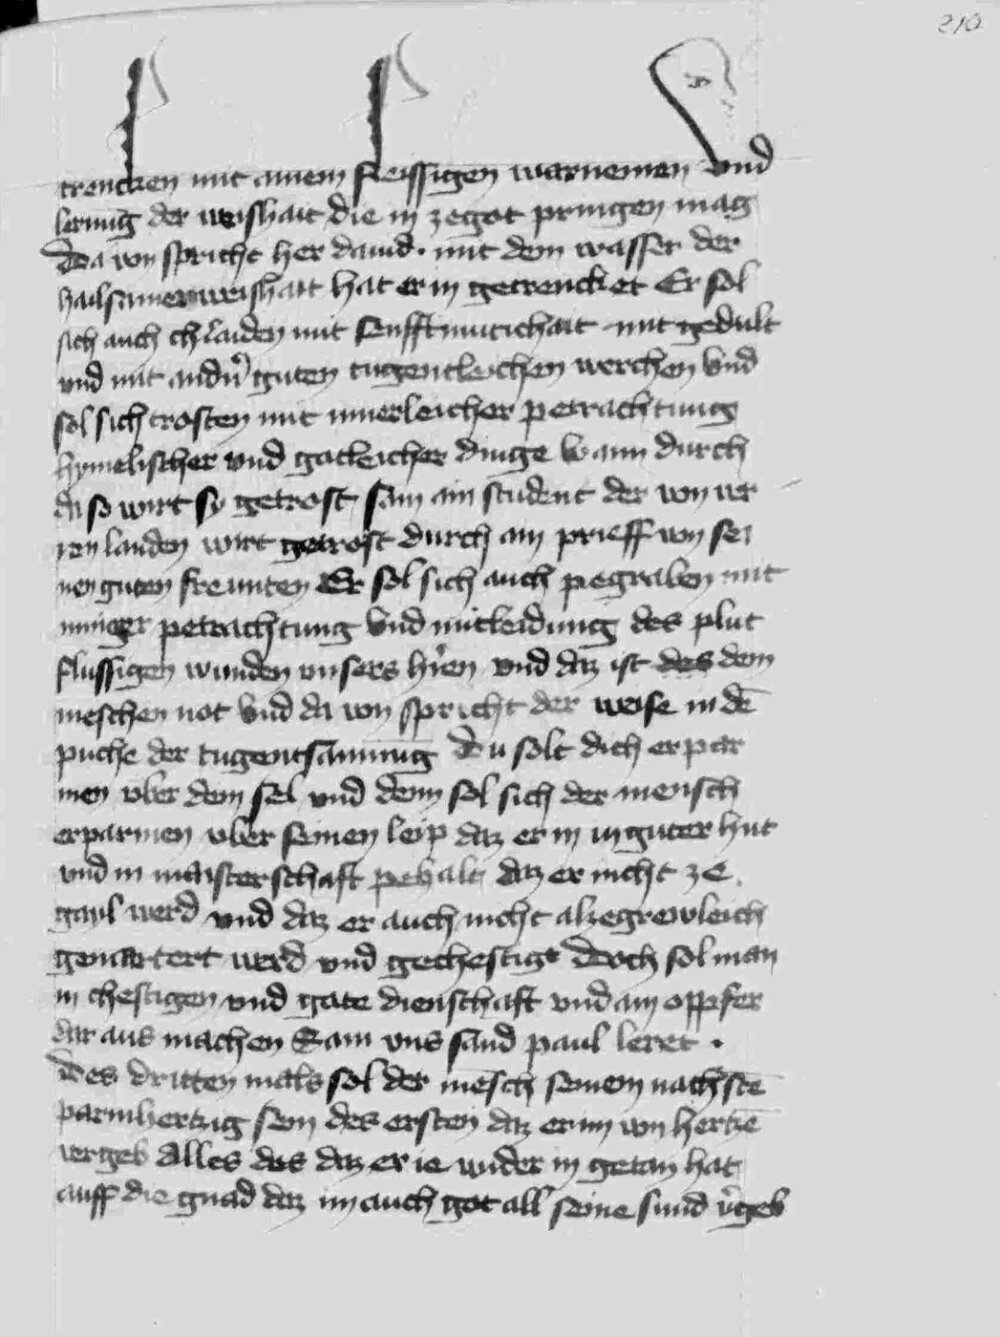 210
trencken mit ainem fleissigen warnemen und
lernung der weishait die in ze got pringen mag
Da von spricht her david · mit dem wasser der
hailsamen weishait hat er in getrencket Er sol
sich auch chlaiden mit senfftmutichait mit gedult
und mit andern guten tugentleichen werchen Und
sol sich trosten mit innerleicher petrachtung
hymelischer und gotleicher dinge wann durch
da so wirt sy getrost sam ain student der von ver
ren landen wirt getrost durch ain prieff von sei
nen guten freunten Er sol sich auch pegraben mit
inniger petrachtung Und mitleidung des plut
flussigen wunden unsers hern und daz ist des dem
meschen not Und da von spricht der weise in dē
puche der tugentsamūg Du solt dich erpar
men uber dein sel und denn sol sich der mensch
erparmen uber seinen leip daz er in in guter hut
und in maisterschaft pehalt daz er nicht ze
gayl werd und daz er auch nicht alzegrewleich
gemartert werd und gechestigt Doch sol man
in chestigen und gote dienschaft und ain oppfer
dar aus machen Sam uns sand paul leret ·
Des dritten mals sol der mesch seinem nachstē
parmhertzig sein des ersten daz er im von hertzē
vergeb Alles des daz er ie wider in getan hat
auff die gnad daz im auch got all seine sund vergeb